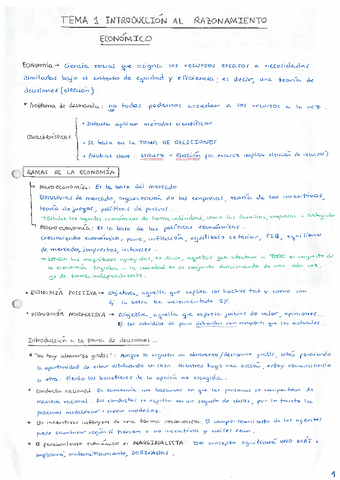 TEMA 1 INTRODUCCIÓN AL RAZONAMIENTO
ECONÓMICO
Economía → Ciencia social que asigna los recursos escasos a necesidades
ilimitadas bajo el criterio de equidad y eficiencia; es decir, una teoría de
decisiones (elección).
* Problema de demanda: no todos podemos acceder a los recursos a la vez.
Características
• Intenta aplicar métodos científicos
• Se basa en la TOMA DE DECISIONES
• Palabras clave ESCASEZ - ELECCIÓN (la escasez implica elección de recursos)
RAMAS DE LA ECONOMÍA
Microeconomía: Es la base del mercado
mercado, organización de las empresas, teoría de los incentivos,
teoría de juegos, políticas de precios
los agentes económicos de forma individual, como las familias, empresas
Macroeconomía: Es la base de las políticas económicas.
crecimiento económico, paro, inflación, equilibrio exterior, PIB, equilibrio
de mercado, impuestos, intereses
es decir, aquellos que afectan a TODO el conjunto de
la economía
y de forma independiente.
• ECONOMÍA POSITIVA → objetiva, aquella que explica los hechos tal y como son
Ej: la renta ha incrementado 2%
• ECONOMÍA NORMATIVA → Subjetiva, aquella que expresa juicios de valor, opiniones...
Ej: los subsidios de paro deberían ser mayores que los actuales.
Introducción a la toma de decisiones...
• "No hay almuerzo gratis": Aunque te regalen un almuerzo/descanso gratis, estás perdiendo
la oportunidad de estar estudiando en casa. Mientras hago una acción, estoy renunciando
a otra. Pierdo los beneficios de la opción no escogida.
• Conducta racional: En economía nos basamos en que las personas se comportan de
manera racional. Sus conductas se repiten en un de veces, por lo tanto la
podemos modelizar: crear modelos.
• Los incentivos influyen de una forma reconocida. El comportamiento de los agentes
puede cambiar según si tienen o no incentivos y cuáles sean.
• El pensamiento económico es MARGINALISTA: Este concepto significará UNO MÁS →
matemáticamente, DERIVADAS.
1